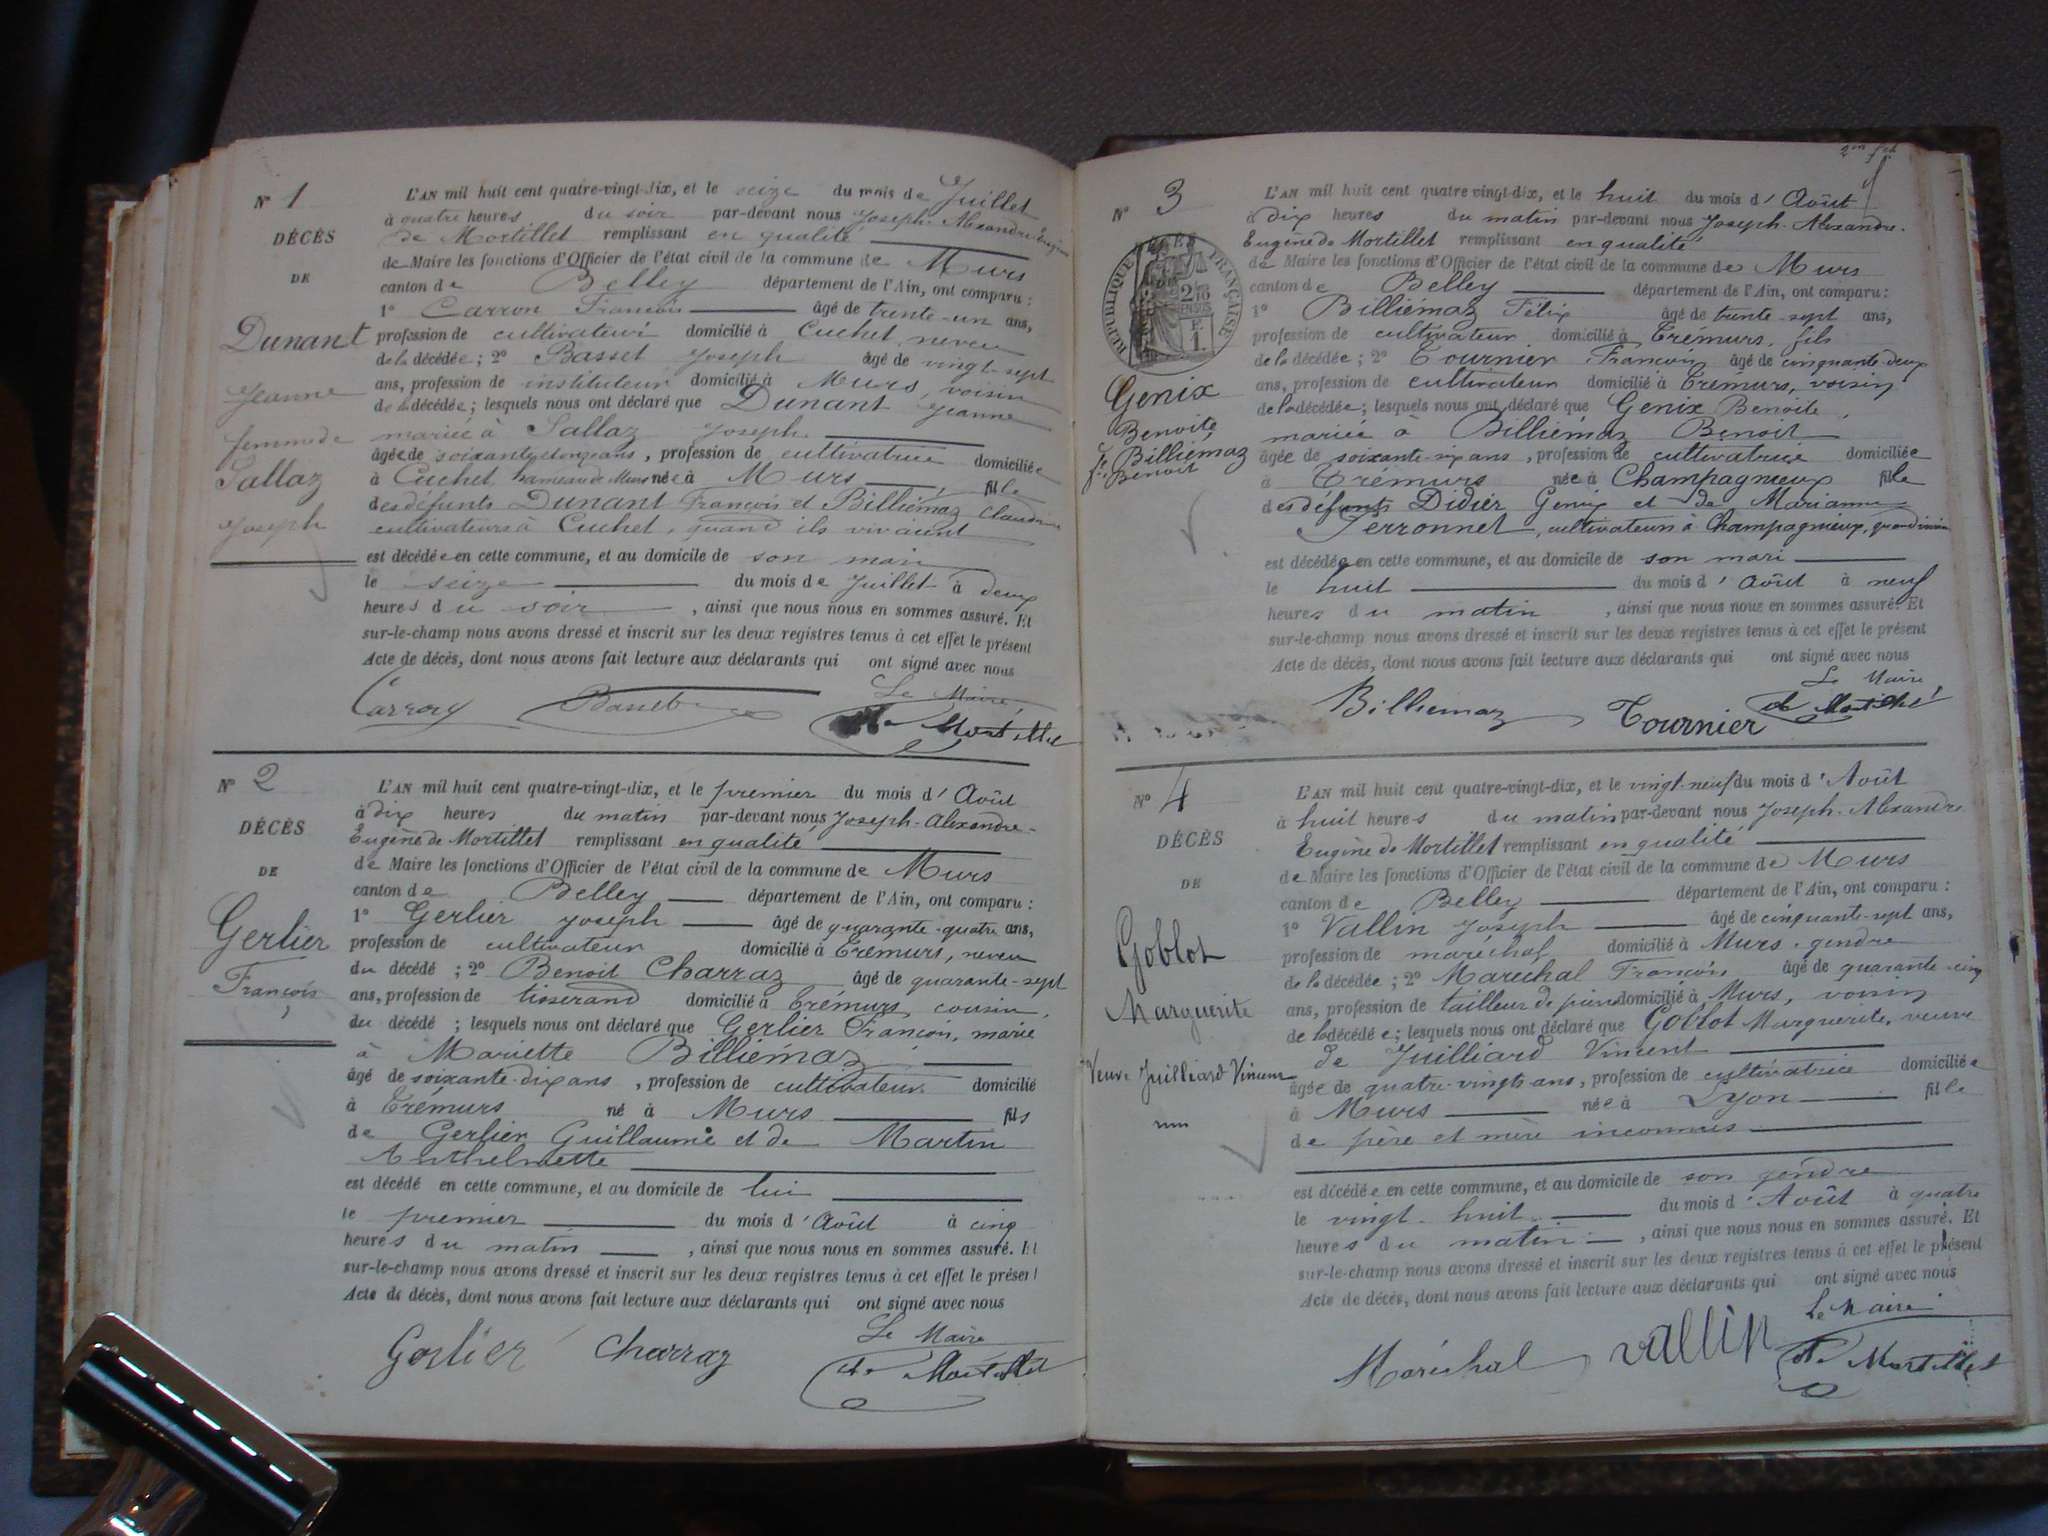 N° 1
DÉCÈS
DE
Dunant
Jeanne
femme de
Sallaz
Joseph
L'AN mil huit cent quatre-vingt-dix, et le seize du mois de Juillet
à quatre heures du soir par-devant nous Joseph-Alexandre Eugène
de Mortillet remplissant en qualité
de Maire les fonctions d'Officier de l'état civil de la commune de Murs
canton de Belley département de l'Ain, ont comparu :
1° Carron François âgé de trente-un ans,
profession de cultivateur domicilié à Cuchet, neveu
de la décédée ; 2° Basset Joseph âgé de vingt-sept
ans, profession de instituteur domicilié à Murs, voisin
de la décédée ; lesquels nous ont déclaré que Dunant Jeanne
mariée à Sallaz Joseph
âgée de soixante et onze ans, profession de cultivatrice domiciliée
à Cuchet hameau de Murs née à Murs, fille
des défunts Dunant François et Billiémaz Claudine
cultivateurs à Cuchet, quand ils vivaient
est décédée en cette commune, et au domicile de son mari
le seize du mois de Juillet à deux
heures du soir, ainsi que nous nous en sommes assuré. Et
sur-le-champ nous avons dressé et inscrit sur les deux registres tenus à cet effet le présent
Acte de décès, dont nous avons fait lecture aux déclarants qui ont signé avec nous
Le Maire,
Carron Basset de Mortillet
N° 2
DÉCÈS
DE
Gerlier
François
L'AN mil huit cent quatre-vingt-dix, et le premier du mois d'Août
à dix heures du matin par-devant nous Joseph-Alexandre-
Eugène de Mortillet remplissant en qualité
de Maire les fonctions d'Officier de l'état civil de la commune de Murs
canton de Belley département de l'Ain, ont comparu :
1° Gerlier Joseph âgé de quarante-quatre ans,
profession de cultivateur domicilié à Trémurs, neveu
du décédé ; 2° Benoit Charraz âgé de quarante-sept
ans, profession de tisserand domicilié à Trémurs, cousin,
du décédé ; lesquels nous ont déclaré que Gerlier François, marié
à Mariette Billiémaz
âgé de soixante-dix ans, profession de cultivateur domicilié
à Trémurs né à Murs fils
de Gerlier Guillaume et de Martin
Anthelmette
est décédé en cette commune, et au domicile de lui
le premier du mois d'Août à cinq
heures du matin, ainsi que nous nous en sommes assuré. Et
sur-le-champ nous avons dressé et inscrit sur les deux registres tenus à cet effet le présent
Acte de décès, dont nous avons fait lecture aux déclarants qui ont signé avec nous
Le Maire
Gerlier Charraz de Mortillet
N° 3
DÉCÈS
RÉPUBLIQUE FRANÇAISE
Genix
Benoite
fe Billiémaz
Benoit
L'AN mil huit cent quatre-vingt-dix, et le huit du mois d'Août
à dix heures du matin par-devant nous Joseph-Alexandre-
Eugène de Mortillet remplissant en qualité
de Maire les fonctions d'Officier de l'état civil de la commune de Murs
canton de Belley département de l'Ain, ont comparu :
1° Billiémaz Félix âgé de trente-sept ans,
profession de cultivateur domicilié à Trémurs, fils
de la décédée ; 2° Tournier François âgé de cinquante-deux
ans, profession de cultivateur domicilié à Trémurs, voisin
de la décédée ; lesquels nous ont déclaré que Genix Benoite,
mariée à Billiémaz Benoit
âgée de soixante-six ans, profession de cultivatrice domiciliée
à Trémurs née à Champagnieux fille
des défunts Didier Genix et de Marianne
Perronnet, cultivateurs à Champagnieux, quand
est décédée en cette commune, et au domicile de son mari
le huit du mois d'Août à neuf
heures du matin, ainsi que nous nous en sommes assuré. Et
sur-le-champ nous avons dressé et inscrit sur les deux registres tenus à cet effet le présent
Acte de décès, dont nous avons fait lecture aux déclarants qui ont signé avec nous
Le Maire
Billiemaz Tournier de Mortillet
N° 4
DÉCÈS
DE
Goblot
Marguerite
Veuve Juilliard Vincent
L'AN mil huit cent quatre-vingt-dix, et le vingt-neuf du mois d'Août
à huit heures du matin par-devant nous Joseph-Alexandre
Eugène de Mortillet remplissant en qualité
de Maire les fonctions d'Officier de l'état civil de la commune de Murs
canton de Belley département de l'Ain, ont comparu :
1° Vallin Joseph âgé de cinquante-sept ans,
profession de maréchal domicilié à Murs, gendre
de la décédée ; 2° Maréchal François âgé de quarante-cinq
ans, profession de tailleur de pierre domicilié à Murs, voisin
de la décédée ; lesquels nous ont déclaré que Goblot Marguerite, veuve
de Juilliard Vincent
âgée de quatre-vingts ans, profession de cultivatrice domiciliée
à Murs née à Lyon fille
de père et mère inconnus
est décédée en cette commune, et au domicile de son gendre
le vingt-huit du mois d'Août à quatre
heures du matin, ainsi que nous nous en sommes assuré. Et
sur-le-champ nous avons dressé et inscrit sur les deux registres tenus à cet effet le présent
Acte de décès, dont nous avons fait lecture aux déclarants qui ont signé avec nous
Le Maire
Maréchal Vallin de Mortillet